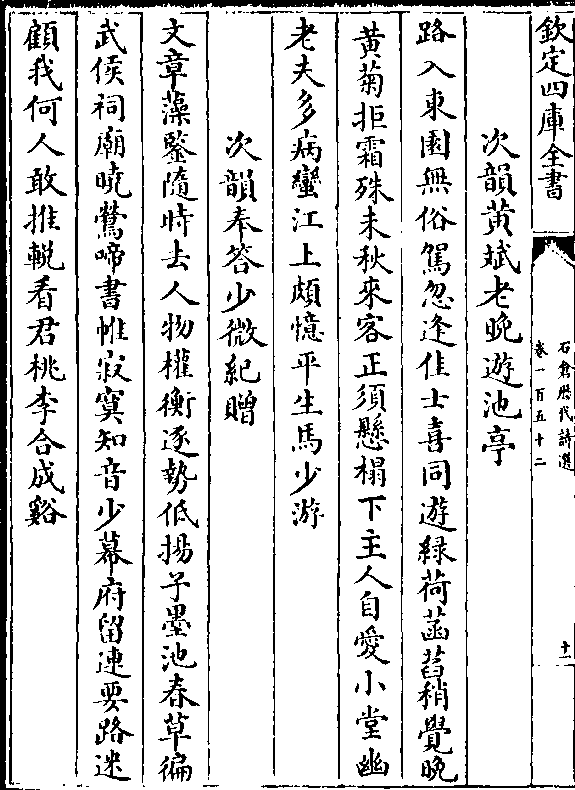 欽定四庫全書
石倉歷代詩選
卷一百五十二
十一
次韻黃斌老晚遊池亭
路入東園無俗駕忽逢佳士喜同遊緑荷菡萏稍覺晚
黄菊拒霜殊未秋來客正須懸榻下主人自愛小堂幽
老夫多病蠻江上頗憶平生馬少游
次韻奉答少微紀贈
文章藻鑒隨時去人物權衡逐勢低揚子墨池春草徧
武侯祠廟曉鶯啼書帷寂寞知音少幕府留連要路迷
顧我何人敢推輓看君桃李合成谿